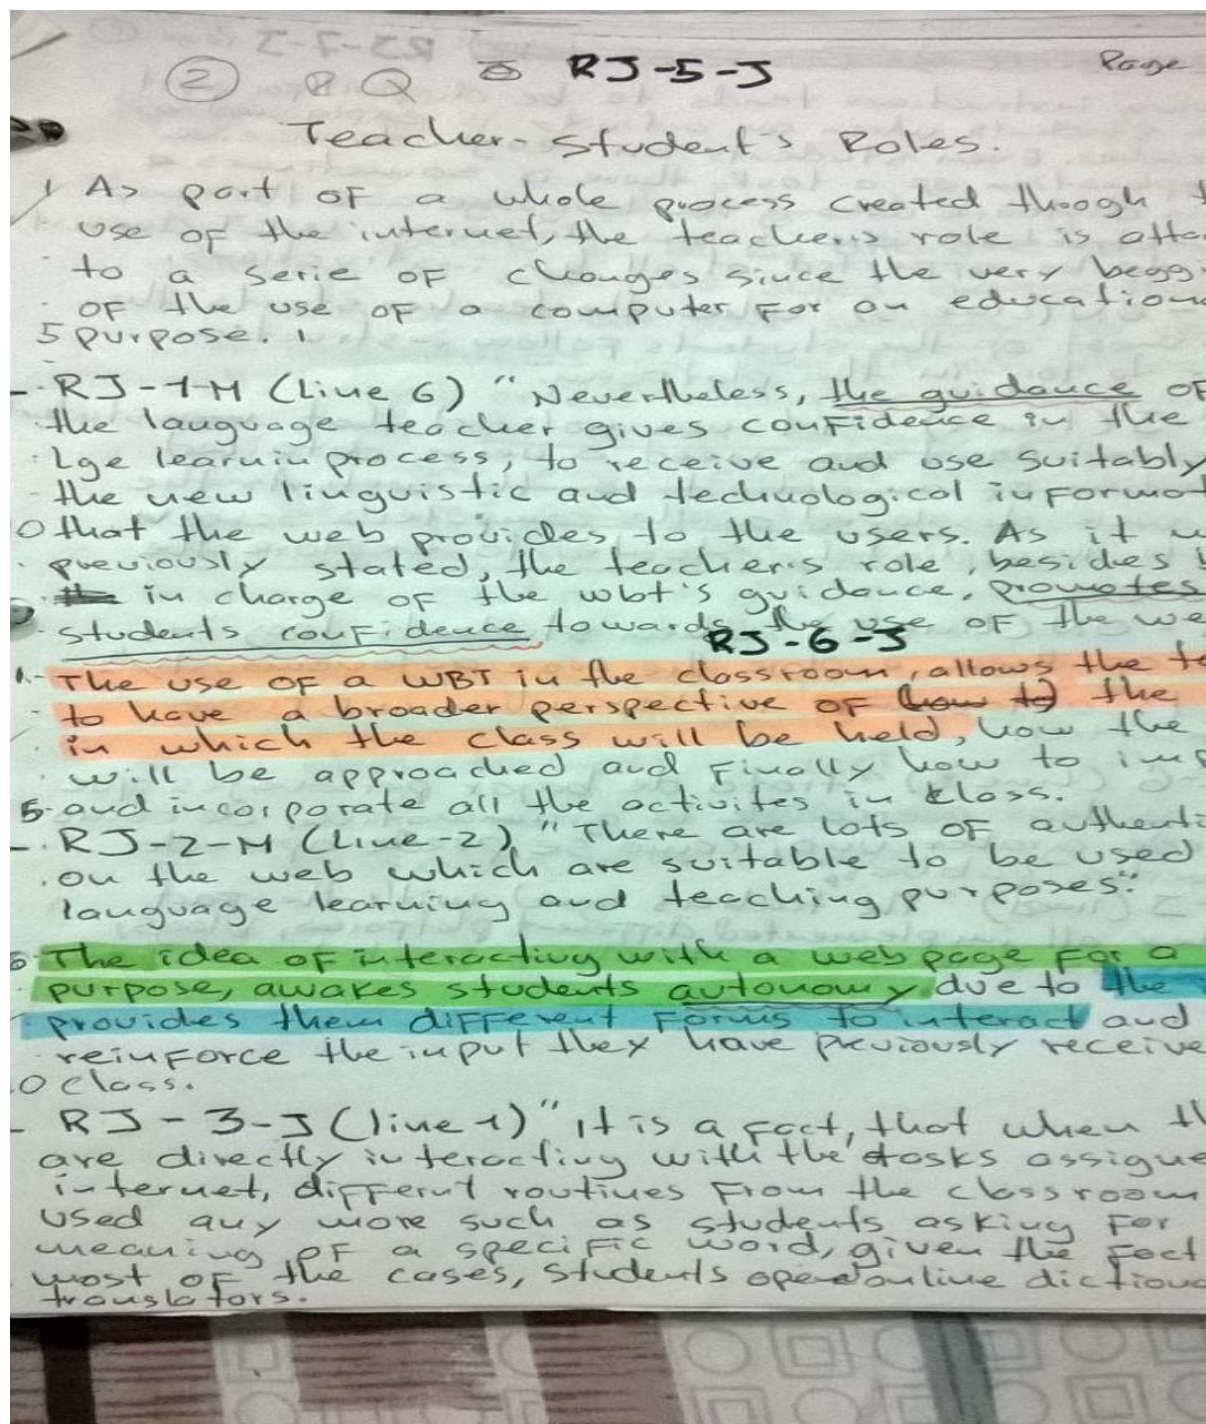 2 Q RJ-5-J Page
Teacher-Student's Roles.
1 As part of a whole process created though t
use of the internet, the teacher's role is atta
to a serie of changes since the very begg
of the use of a computer for an educationa
5 purpose. 1
-RJ-1-M (Line 6) "Nevertheless, the guidance of
the language teacher gives confidence in the
Lge learnin process, to receive and use suitably
the new linguistic and technological informat
0 that the web provides to the users. As it w
previously stated, the teacher's role, besides b
in charge of the wbt's guidance, promotes
students confidence towards the use of the we
RJ-6-J
1- The use of a WBT in the classroom, allows the te
to have a broader perspective of (how to) the
in which the class will be held, how the
will be approached and finally how to imp
5-and incorporate all the activites in class.
-. RJ-2-M (Line-2) "There are lots of authenti
on the web which are suitable to be used
language learning and teaching purposes".
6 The idea of interacting with a web page for a
purpose, awakes students autonomy due to the
provides them different forms to interact and
reinforce the input they have previously receive
0 class.
- RJ-3-J (line 1) "it is a fact, that when th
are directly interacting with the tasks assigne
internet, differnt routines from the classroom
used any more such as students asking for
meaning of a specific word, given the fact
most of the cases, students open online dictiona
translators.